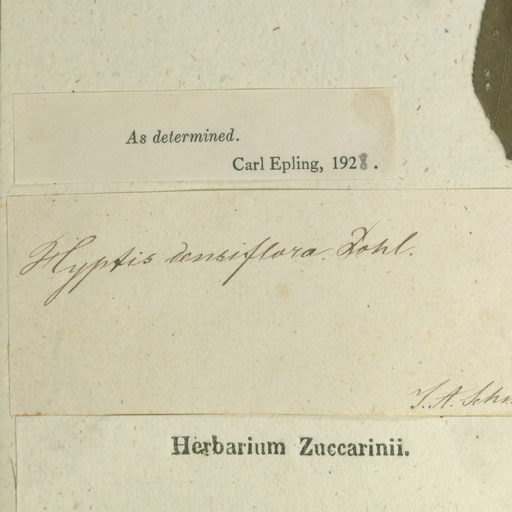 As determined.
Carl Epling, 1928.
Hyptis densiflora. Pohl.
J. A. Schm
Herbarium Zuccarinii.